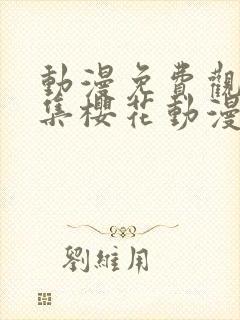 動漫免費觀
集櫻花動漫
劉維用